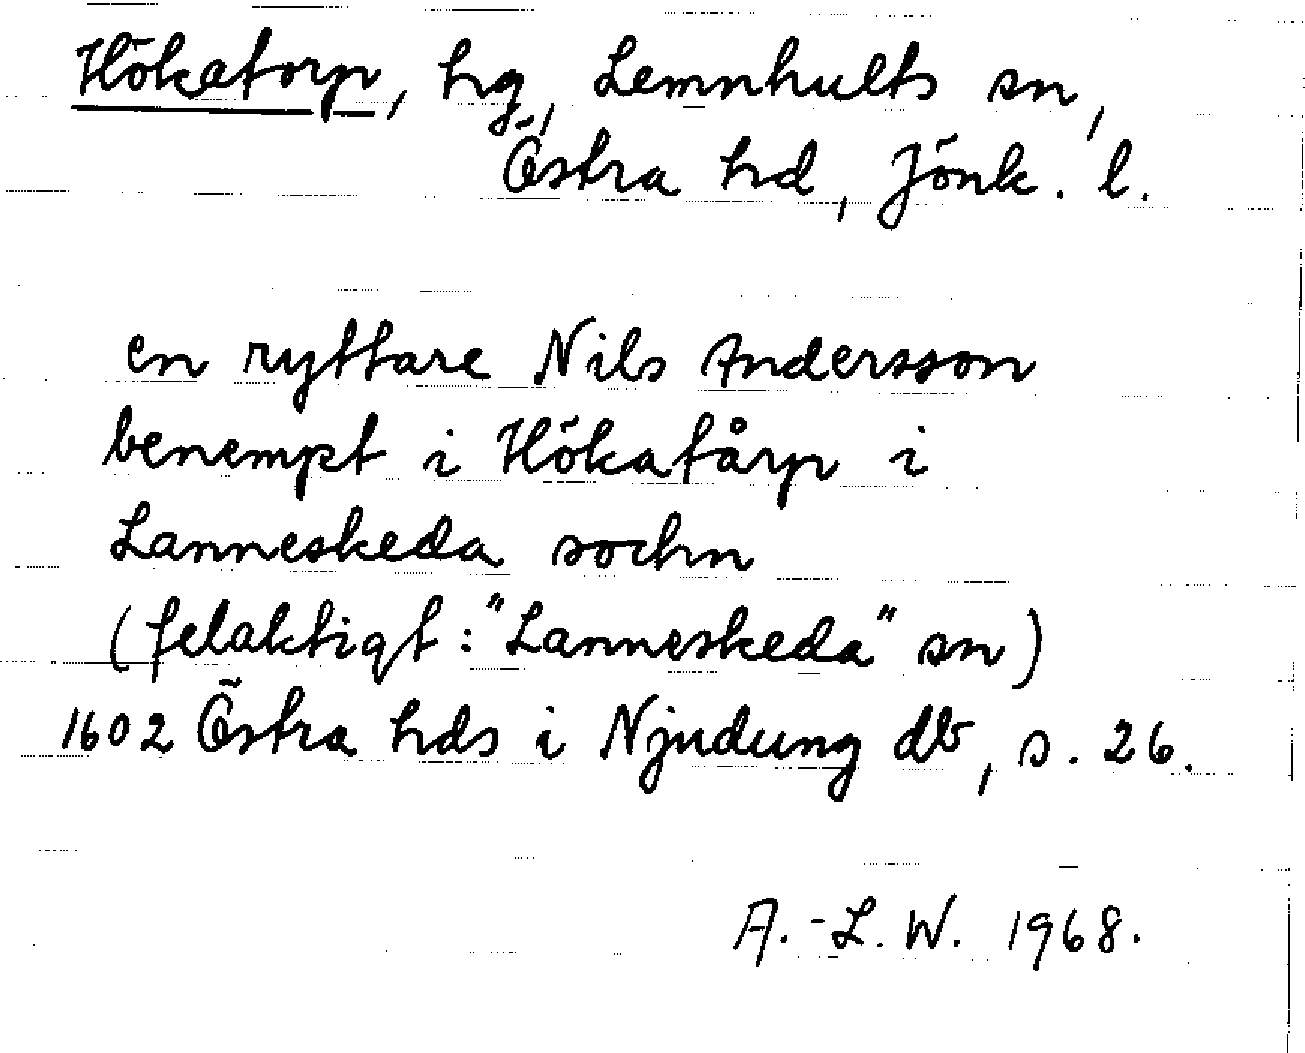 Hökatorp, hg, Lemnhults sn,
Östra hd, Jönk. l.
en ryttare Nils Andersson
benempt i Hökatårp i
Lanneskeda sochn
(felaktigt: "Lanneskeda" sn)
1602 Östra hds i Njudung db, s. 26.
A.-L. W. 1968.